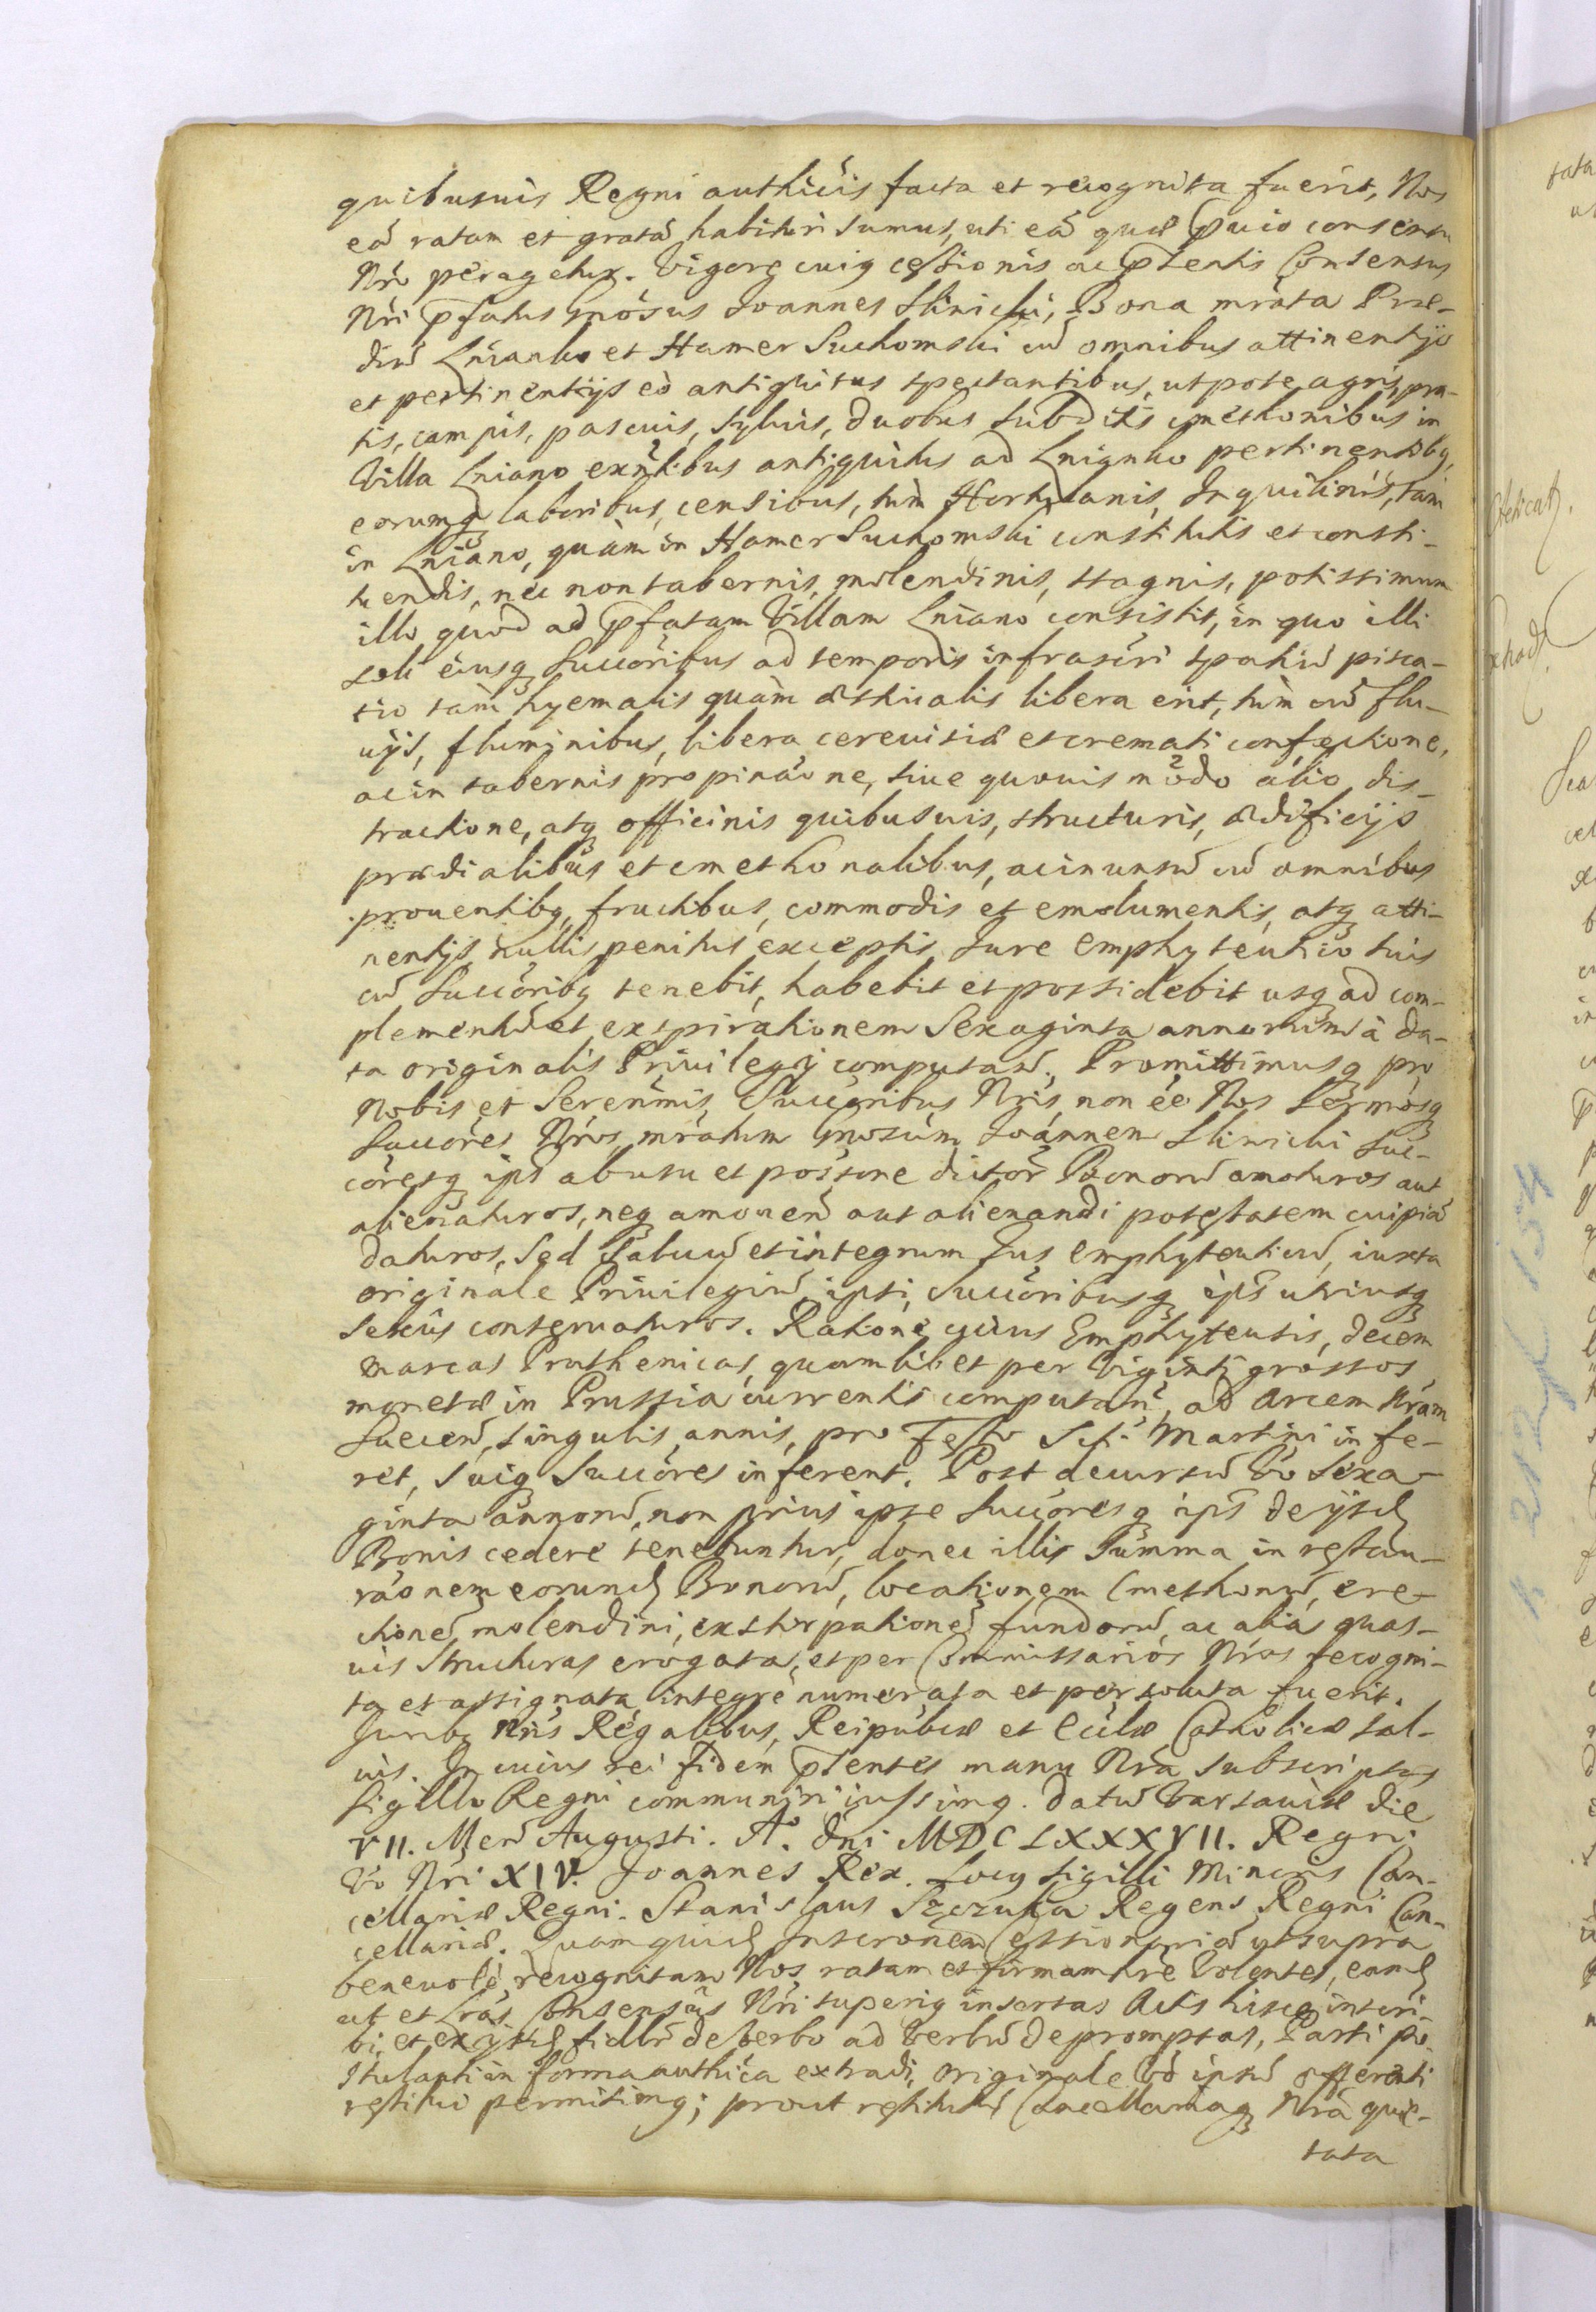 quibusuis Regni authĕcis facta et recognita fuerit, Nos
eã ratam et gratã habituri sumus, uti eã quæ p̃uio consensu
Nŕo peragetur. Vigore cuiq cessionis ac p̃sentis Consensus
Nŕi p̃fatus Gnósus Joannes Sliwicki, Bona mŕata Præ-
diũ Lnianko et Hamer Suchomski cũ omnibus attinentijs
et pertinentijs eò antiquitus spectantibus, utpote agris, pra-
tis, campis, pascuis, syluis, duobus subditis cmethonibus in
Villa Lniano exñtibus antiquitus ad Lnianko pertinentibq,
eorumq laboribus, censibus, tùm Hortulanis, Inquilinis, tàm
in Lniano, quàm in Hamer Suchomski constitutis et consti-
tuendis, nec non tabernis, molendinis, stagnis, potissimum
illo, quod ad p̃fatam Villam Lniano consistit, in quo illi
soli eiusq Succóribus ad temporis infrascŕi spatiũ pisca-
tio tàm hyemalis quàm æstiualis libera erit, tùm cũ flu-
uijs, fluminibus, libera cereuisiæ et cremati confectione,
ac in tabernis propinãone, siue quouis modo alio dis-
tractione, atq officinis quibusuis, structuris, ædificijs
prædialibus et cmethonalibus, ac in unũ cũ omnibus
prouentibq, fructibus, commodis et emolumentis, atq atti-
nentijs nullis penitus exceptis Jure emphyteutico suis
cũ Succóribq tenebit, habebit et possidebit usq ad com-
plementũ et exspirationem Sexaginta annorum à da-
ta originalis Priuilegij computañ. Promittimusq pro
Nobis et Serenmis Succóribus Nŕis, non ée Nos Sermosq
Succóres Nŕos mŕatum Gnosum Joannem Sliwicki Suc-
córesq ips̃ ab usu et possione dictor̃ Bonorũ amoturos aut
alienaturos, neq amouenđ aut alienandi potestatem cuipiã
daturos, sed Saluũ et integrum Jus emphyteuticũ, iuxta
originale Priuilegiũ, ipsi, Succóribusq ips̃ utriusq
Sexûs conseruaturos. Ratione cuius Emphyteusis, decem
marcas Pruthenicas, quamlibet per Viginti grossos
monetæ in Prussia currentis computañ, ad Arcem Nŕam
Suecen̄, singulis annis, pro Festo Scti Martini infe-
ret, suiq Succóres inferent. Post decursũ Vo Sexa-
ginta annorũ, non prius ipse Succóresq ips̃ de ijsđ
Bonis cedere tenebuntur, donec illis Summa in restau-
rãonem eorunđ Bonorũ, locationem Cmethonũ, ere-
ctionẽ molendini, exstirpationẽ fundorũ, ac aliàs quas-
uis Structuras erogata, et per Commissarios Nŕos recogni-
ta et assignata integrè numerata et persoluta fuerit.
Juribq Nŕis Regalibus, Reipublæ et Ecclæ Catholicæ sal-
uis. In cuius rei fidem p̃sentes manu Nŕa subscriptas
Sigillo Regni communiri iussimq. Datũ Varsauiæ die
VII. Mens̃ Augusti. Ao. dni MDCLXXXVII. Regni
Vo Nŕi XIV. Joannes Rex. Locq Sigilli Minoris Can-
cellariæ Regni. Stanislaus Szczuka Regens Regni Can-
cellariæ. Quamquiđ Inscrõnem Cessionariã ut supra
beneuolè recognitam Nos ratam et firmam hŕe Volentes, eamđ
ut et Lrás Consensûs Nŕi superiq insertas Actis hisce inscri-
bi, et ex ijsđ fidlr de Verbo ad Verbũ depromptas, Parti po-
stulanti in forma authĕca extradi, originale Vo ipsũ offerenti
restitui permitimq; prout restitutũ Cancellariaq Nŕa quie-
tata